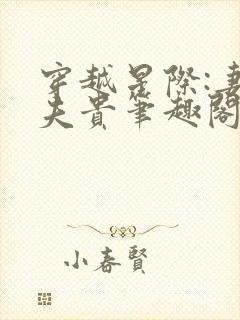 穿越星際:妻
夫貴筆趣閣
小春賢